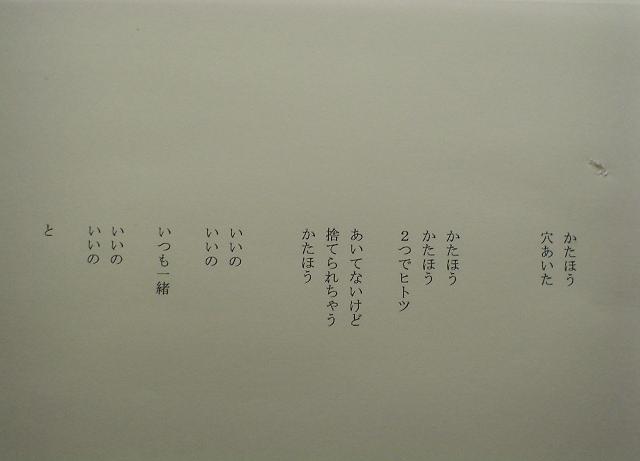 かたほう
穴あいた
かたほう
かたほう
２つでヒトツ
あいてないけど
捨てられちゃう
かたほう
いいの
いいの
いつも一緒
いいの
いいの
と